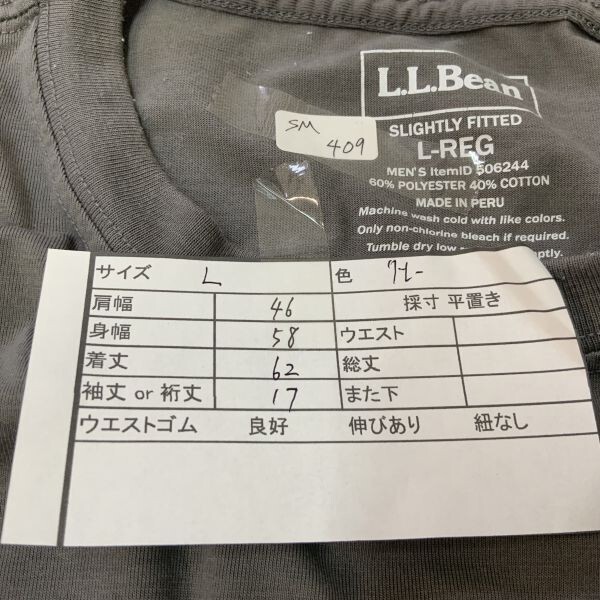 L.L.Bean
SLIGHTLY FITTED
L-REG
MEN'S ItemID 506244
60% POLYESTER 40% COTTON
MADE IN PERU
Machine wash cold with like colors.
Only non-chlorine bleach if required.
Tumble dry low
SM
409
サイズ L 色 グレー
肩幅 46 採寸 平置き
身幅 58 ウエスト
着丈 62 総丈
袖丈 or 裄丈 17 また下
ウエストゴム 良好 伸びあり 紐なし